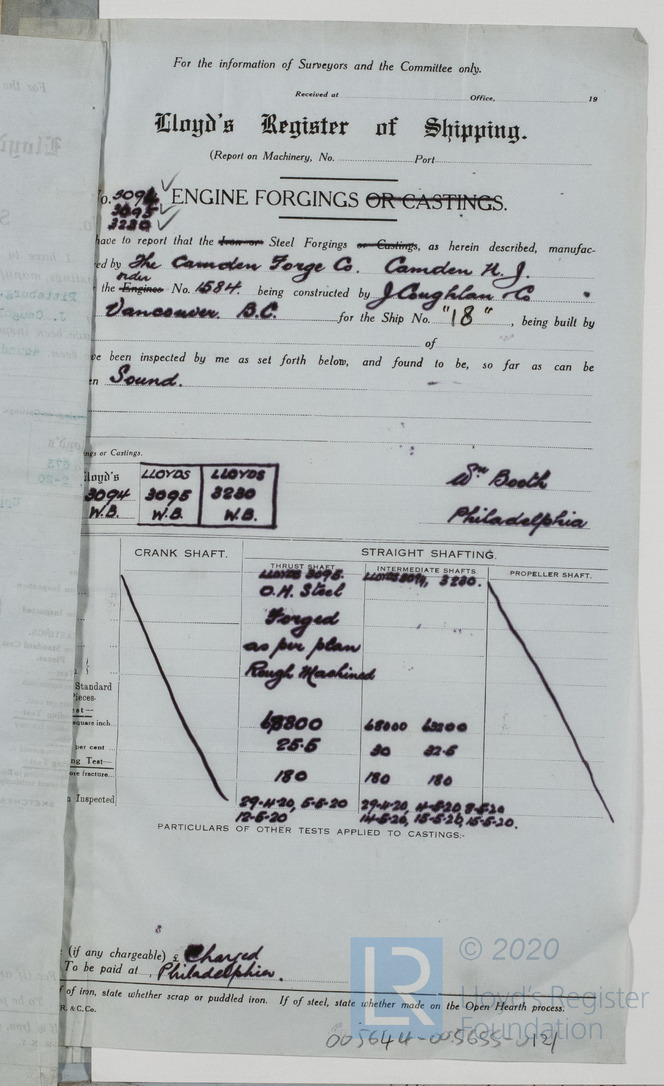 For the information of Surveyors and the Committee only.
Received at Office, 19
Lloyd's Register of Shipping.
(Report on Machinery, No. Port
o. 3094
3095
3230
ENGINE FORGINGS OR CASTINGS.
have to report that the Iron or Steel Forgings or Castings, as herein described, manufac-
ed by The Camden Forge Co. Camden N. J.
order
the Engines No. 1584. being constructed by J Coughlan & Co
Vancouver. B.C. for the Ship No. "18", being built by
of
ve been inspected by me as set forth below, and found to be, so far as can be
en Sound.
ngs or Castings.
lloyd's LLOYDS LLOYDS
3094 3095 3230
W.B. W.B. W.B.
Wm Booth
Philadelphia
CRANK SHAFT. STRAIGHT SHAFTING.
THRUST SHAFT INTERMEDIATE SHAFTS. PROPELLER SHAFT.
LLOYDS 3095. LLOYDS 3094, 3230.
O.H. Steel
Forged
as per plan
Rough Machined
Standard
Pieces.
est—
square inch. 68000 63200
per cent 25.5 30 32.5
ng Test—
ore fracture. 180 180 180
n Inspected 29-4-20, 5-5-20 29-4-20, 4-5-20, 8-5-20
12-5-20 14-5-20, 15-5-20, 15-5-20.
PARTICULARS OF OTHER TESTS APPLIED TO CASTINGS:-
(if any chargeable) £ Charged
To be paid at Philadelphia.
f of iron, state whether scrap or puddled iron. If of steel, state whether made on the Open Hearth process.
R. & C. Co.
LR
© 2020
Lloyd's Register
Foundation
005644-005655-0121